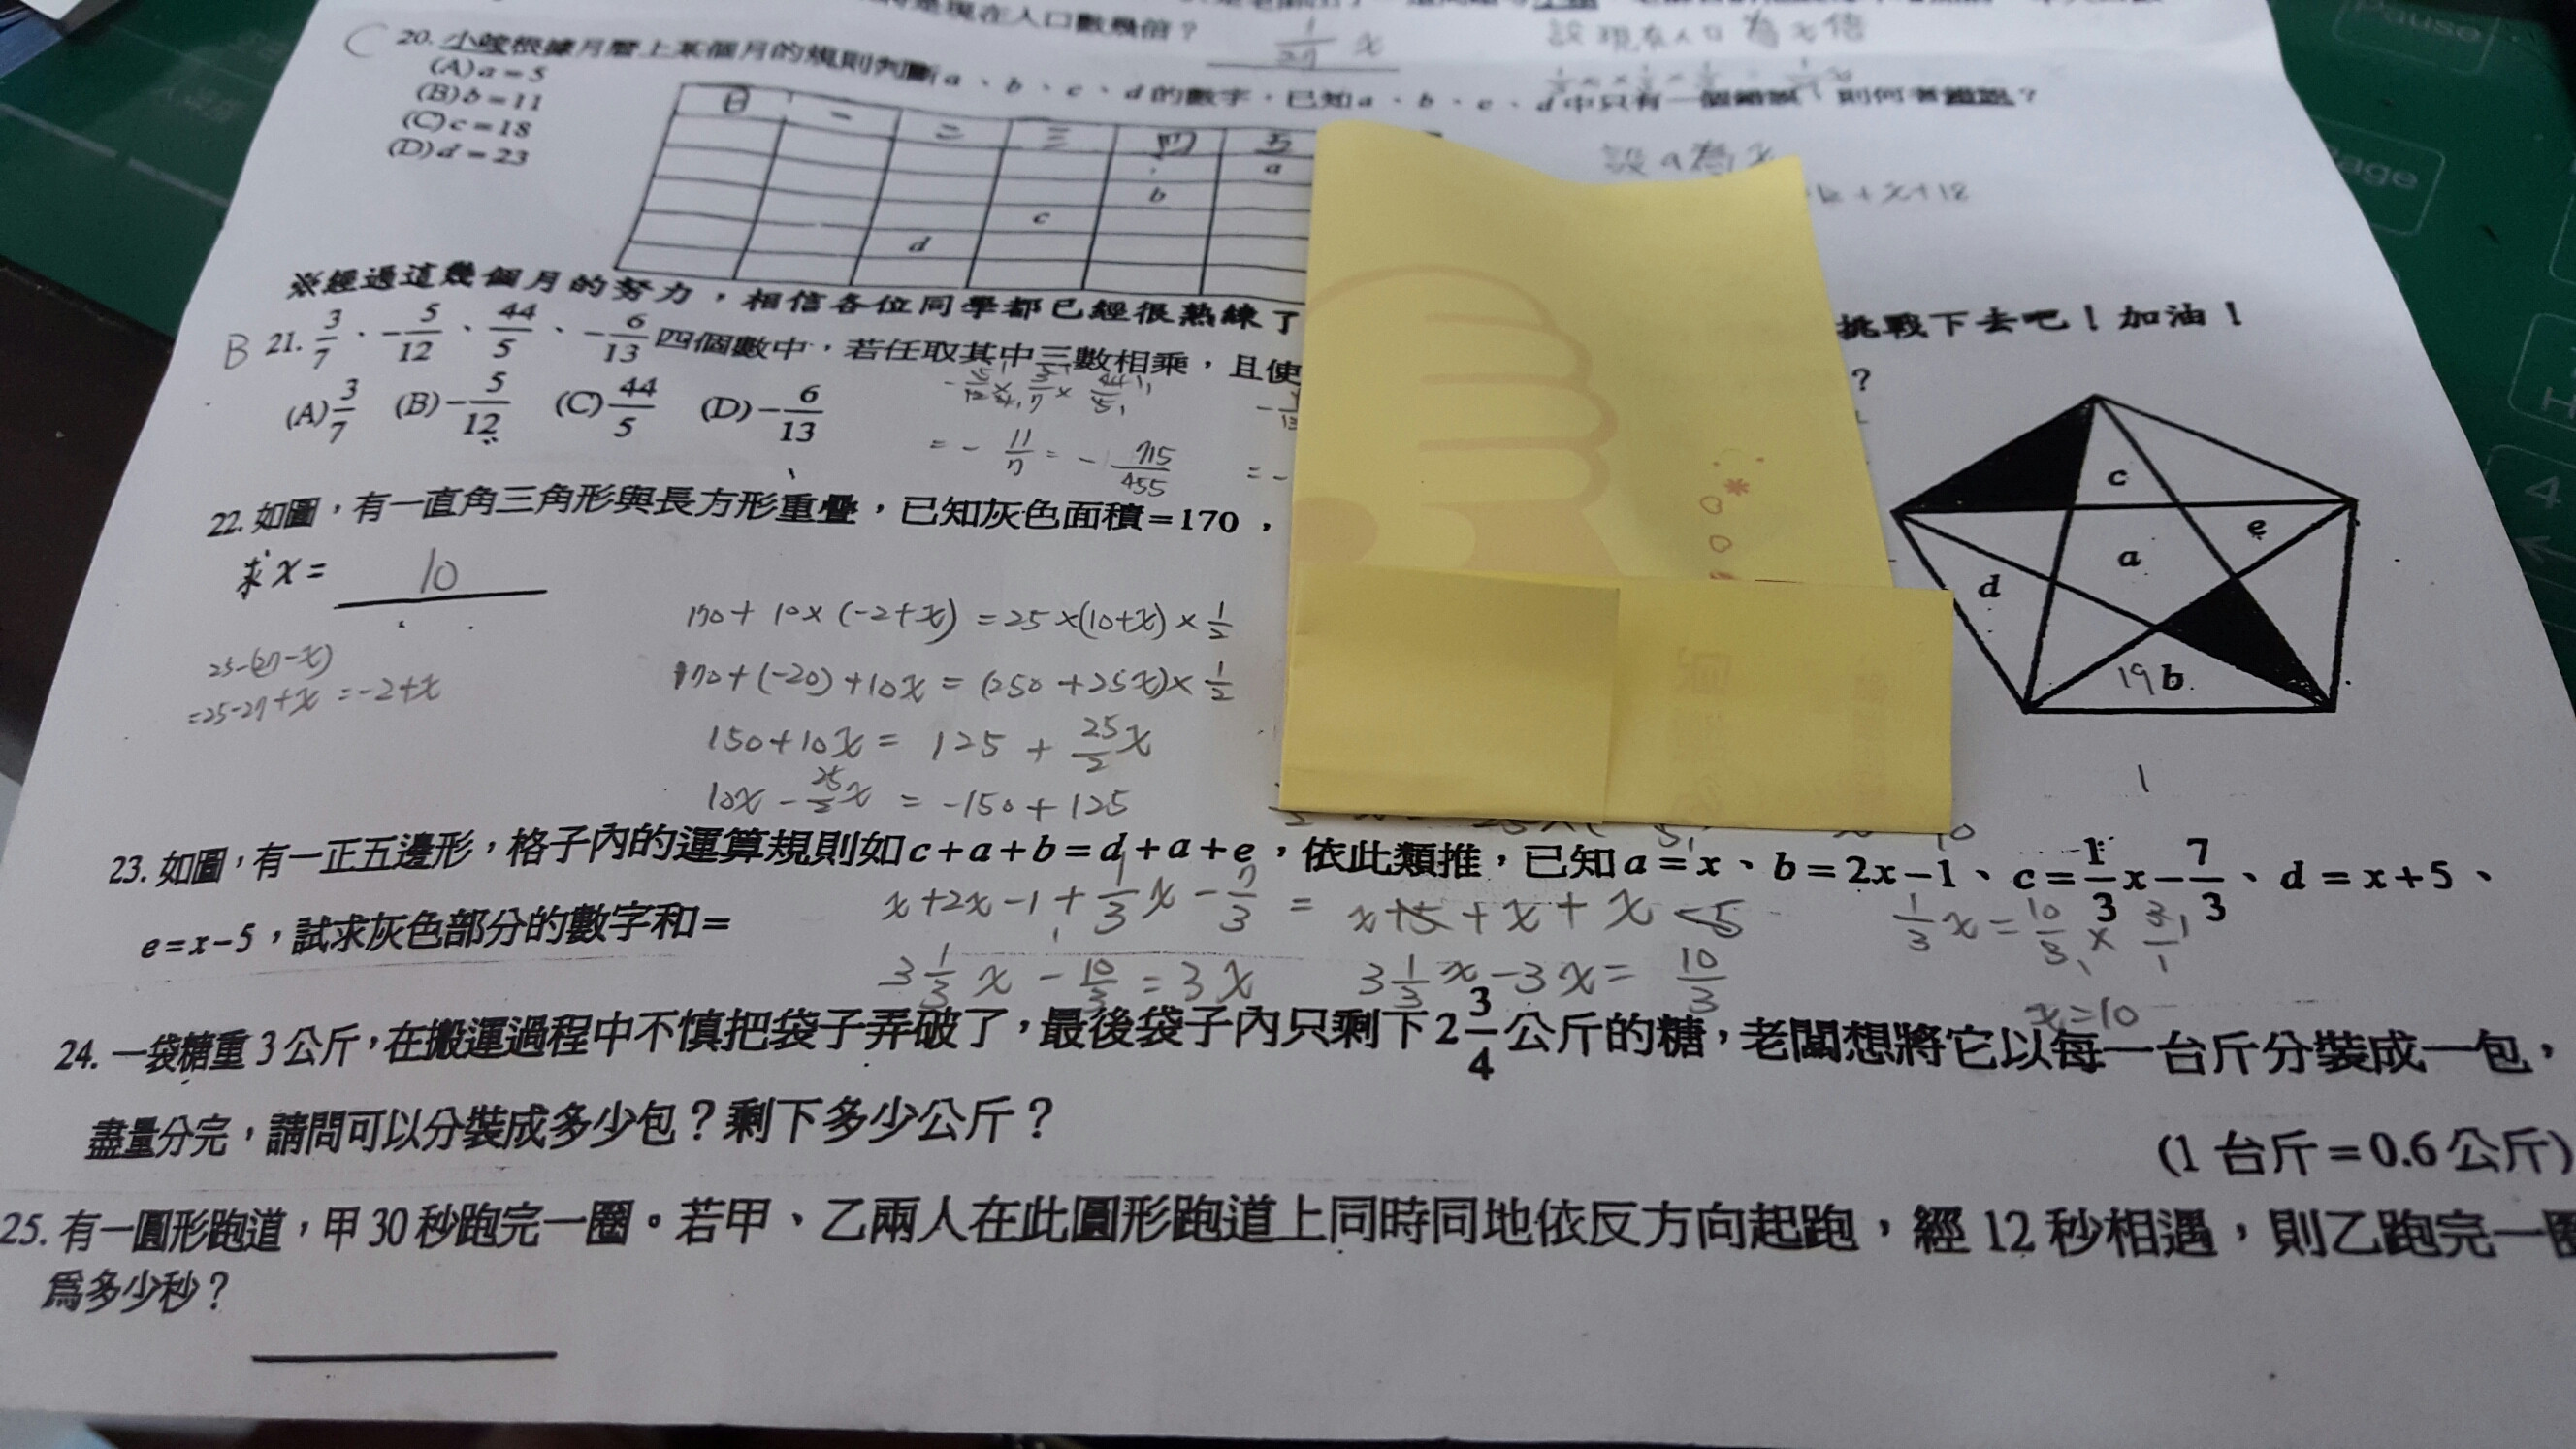 是現在人口數幾倍？
1/27 x
設現在人口為x倍
C 20. 小晙根據月曆上某個月的規則判斷a、b、c、d的數字，已知a、b、c、d中只有一個錯誤，則何者錯誤？
(A) a=5
(B) b=11
(C) c=18
(D) d=23
日 一 二 三 四 五
a
b
c
d
設a為x
+x+18
※經過這幾個月的努力，相信各位同學都已經很熟練了
挑戰下去吧！加油！
B 21. 3/7、-5/12、44/5、-6/13 四個數中，若任取其中三數相乘，且使
？
(A) 3/7 (B) -5/12 (C) 44/5 (D) -6/13
-5/12 × 3/7 × 44/5
= -11/7 = -715/455
22. 如圖，有一直角三角形與長方形重疊，已知灰色面積=170，
求x= 10
25-(27-x)
=25-27+x =-2+x
170+10×(-2+x)=25×(10+x)×1/2
170+(-20)+10x=(250+25x)×1/2
150+10x=125+25/2x
10x-25/2x=-150+125
c
e
a
d
19 b
23. 如圖，有一正五邊形，格子內的運算規則如c+a+b=d+a+e，依此類推，已知a=x、b=2x-1、c=1/3x-7/3、d=x+5、
e=x-5，試求灰色部分的數字和=
x+2x-1+1/3x-7/3=x+5+x+x-5
1/3x=10/3×3/1
3 1/3x-10/3=3x
3 1/3x-3x=10/3
x=10
24. 一袋糖重3公斤，在搬運過程中不慎把袋子弄破了，最後袋子內只剩下2 3/4公斤的糖，老闆想將它以每一台斤分裝成一包，
盡量分完，請問可以分裝成多少包？剩下多少公斤？
(1台斤=0.6公斤)
25. 有一圓形跑道，甲30秒跑完一圈。若甲、乙兩人在此圓形跑道上同時同地依反方向起跑，經12秒相遇，則乙跑完一圈
為多少秒？
Pause
4